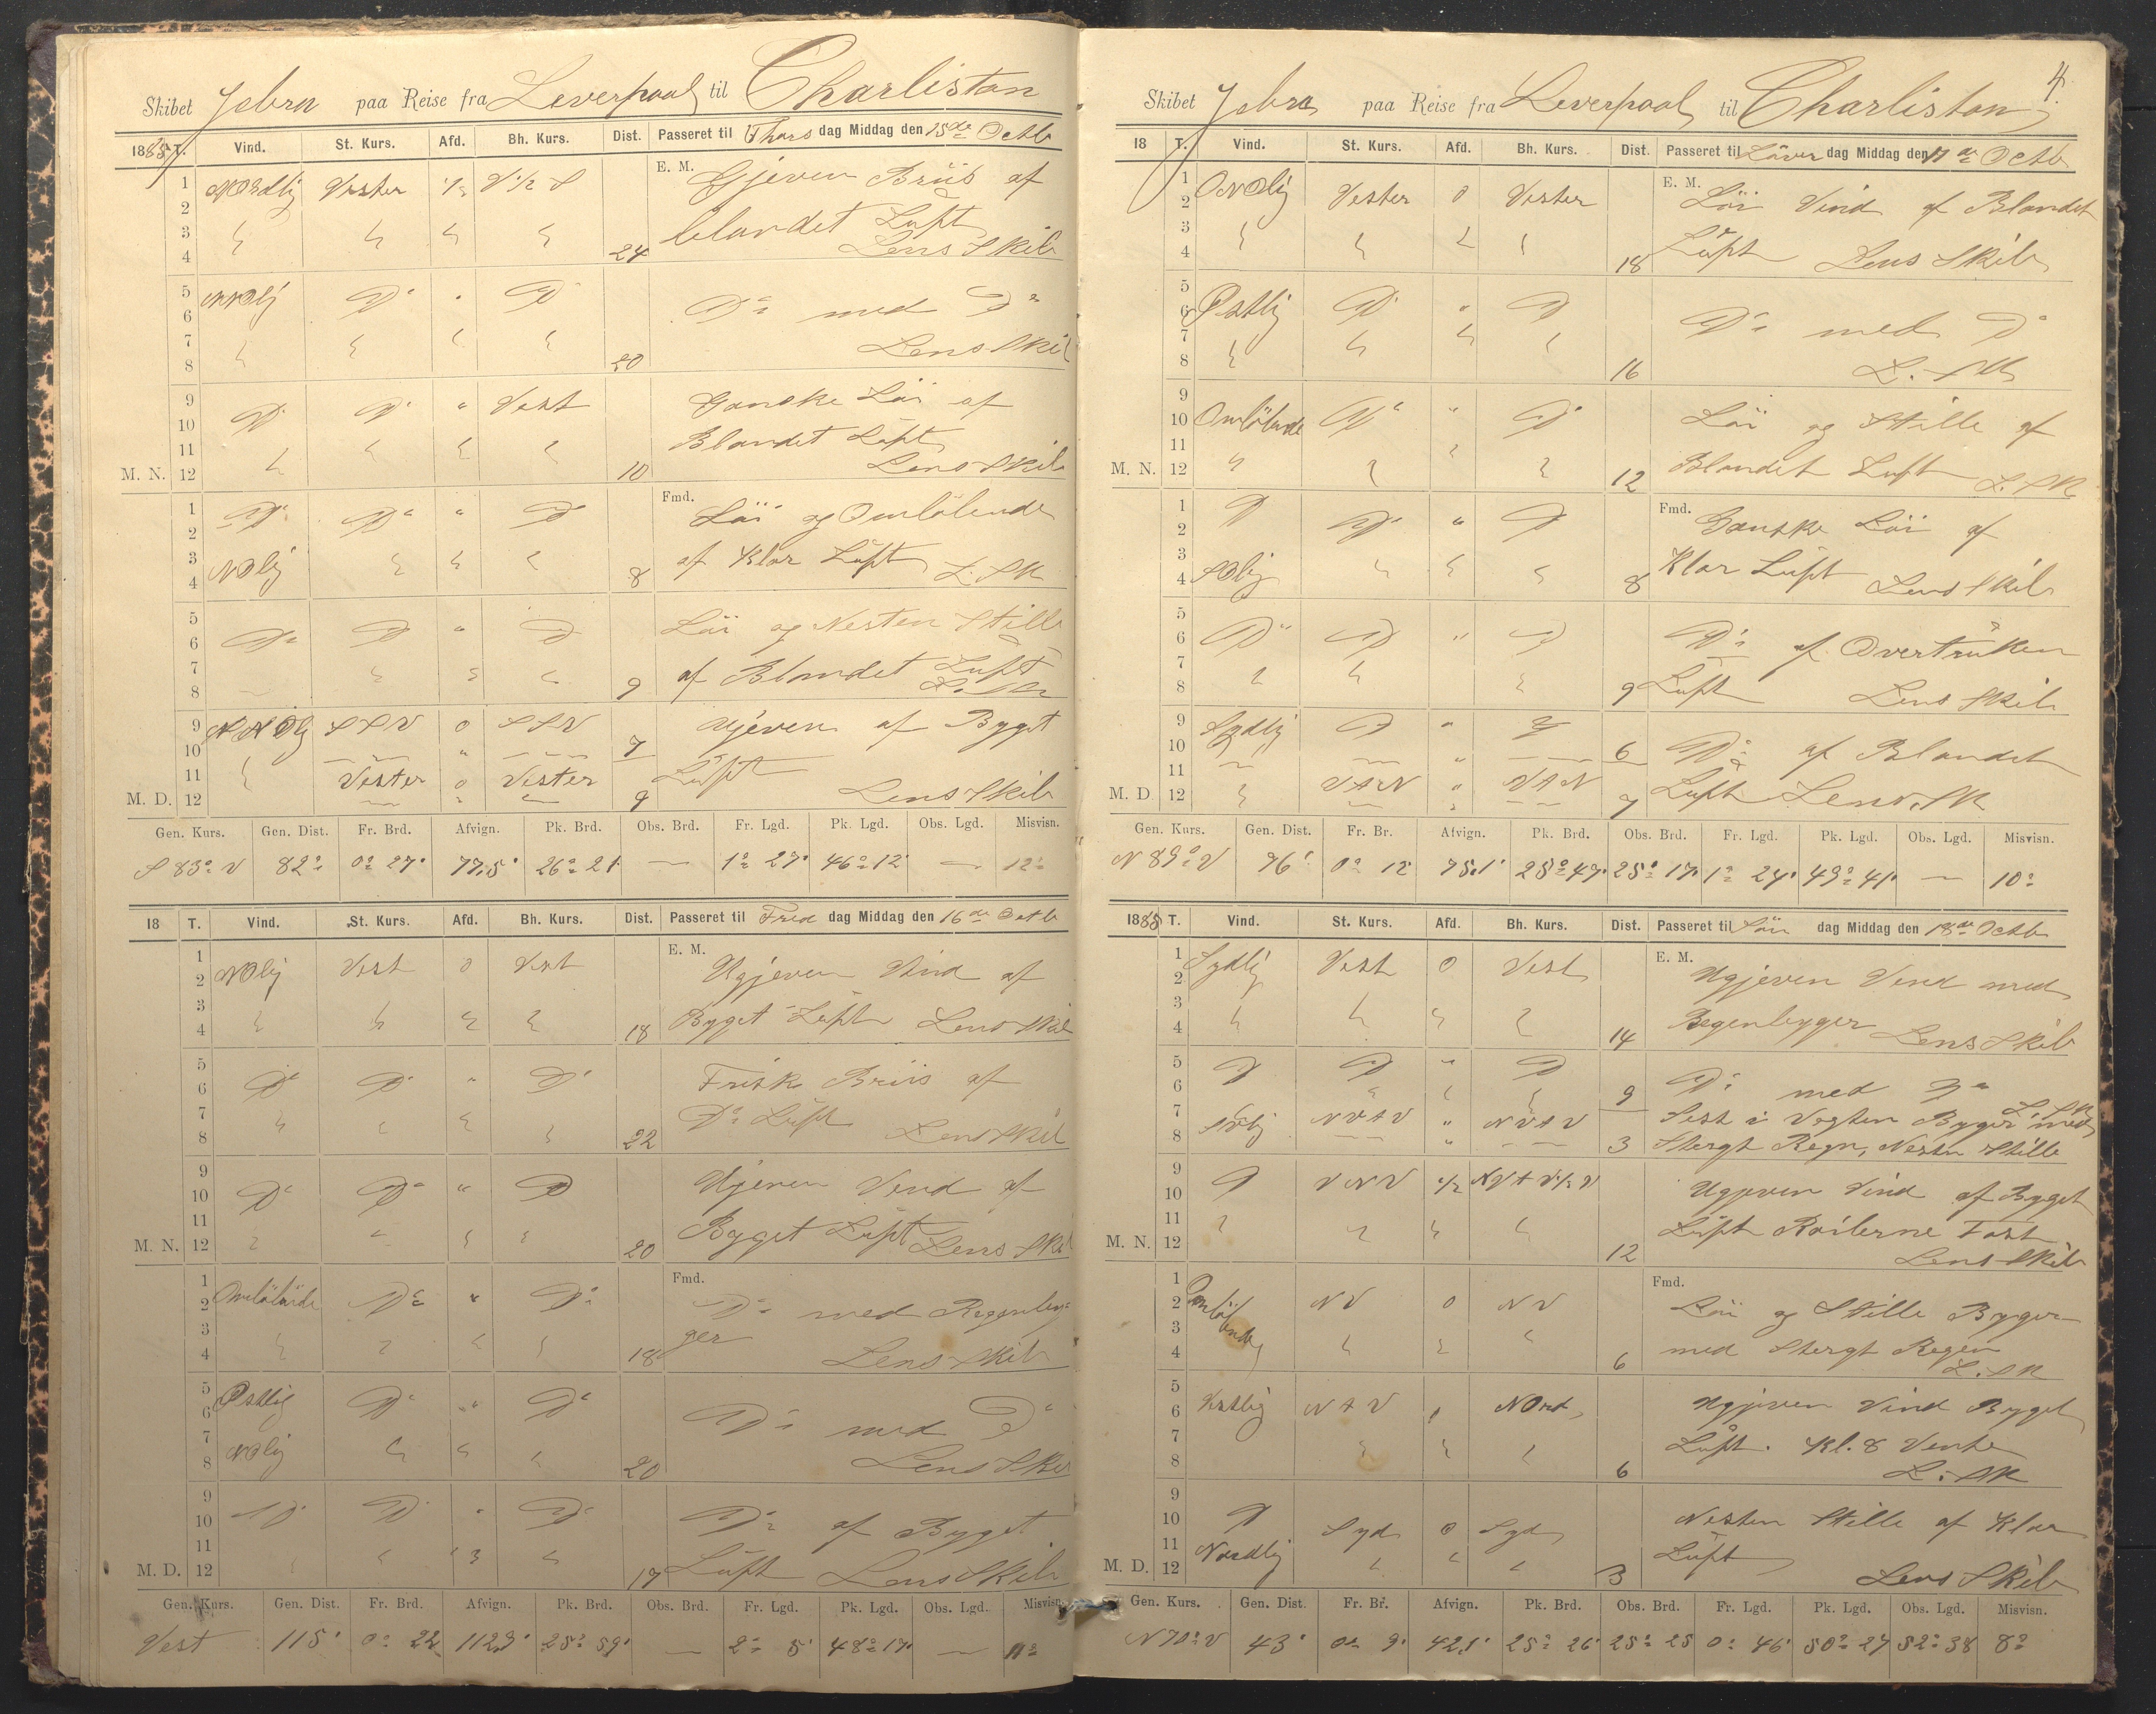 Skibet Jebra paa Reise fra Leverpool til Charliston
1885 T. Vind. St. Kurs. Afd. Bh. Kurs. Dist. Passeret til Thors dag Middag den 15de Octb
1 Nordlig Vester 1/2 V 1/2 S E. M. Gjeven Briis af
2
3 blandet Luft
4 24 Lens Skib
5 NNOlig D. " D
6 Do med Do
7
8 20 Lens Skib
9 D. D. " Vest Ganske Löi af
10
11 Blandet Luft
M. N. 12 10 Lens Skib
1 D. Do " D Fmd. Löi og Omlöbende
2
3 NOlig af Klar Luft
4 8 L. SK
5 Löi og Nesten Stille
6 Do D " D
7 af Blandet Luft
8 9 L. SK
9 NNOlig SSV 0 SSV 7 Ujeven af Bygt
10 "
11 Vester 0 Vester Luft
M. D. 12 9 Lens Skib
Gen. Kurs. Gen. Dist. Fr. Brd. Afvign. Pk. Brd. Obs. Brd. Fr. Lgd. Pk. Lgd. Obs. Lgd. Misvisn.
S 83° V 82 0° 27' 77,5' 26° 21' — 1° 27' 46° 12' — 12°
18 T. Vind. St. Kurs. Afd. Bh. Kurs. Dist. Passeret til Fred dag Middag den 16de Octb
1 E. M.
2 NOlig Vest 0 Vest Ugjeven Vind af
3
4 18 Byget Luft Lens Skib
5
6 Do D. " D. Frisk Briis af
7 Do Luft
8 22 Lens Skib
9
10 Do Do " D Ujeven Vend af
11 Byget Luft
M. N. 12 20 Lens Skib
1 Fmd.
2 Omlöbende Do " Do Do med Regenbyg-
3 ger
4 18 Lens Skib
5 Ostlig Do " Do
6 Do med Do
7 NOlig
8 20 Lens Skib
9
10 D. D. " D. Do af Byget
11
M. D. 12 19 Luft Lens Skib
Gen. Kurs. Gen. Dist. Fr. Brd. Afvign. Pk. Brd. Obs. Brd. Fr. Lgd. Pk. Lgd. Obs. Lgd. Misvisn.
Vest 115' 0° 22 112,3' 25° 59' — 2° 5' 48° 17' — 11°
4.
Skibet Jebra paa Reise fra Leverpool til Charliston
18 T. Vind. St. Kurs. Afd. Bh. Kurs. Dist. Passeret til Löver dag Middag den 17de Octb
1 ONOlig Vester 0 Vester E. M. Löi Vind af Blandet
2
3 Luft
4 18 Lens Skib
5
6 Ostlig D. " D Do med Do
7
8 16 L. SK
9
10 Omlöbende Do " Do Löi og Stille af
11
M. N. 12 12 Blandet Luft L. SK
1 D D. " D Fmd. Ganske Löi af
2
3 Klar Luft
4 SOlig 8 Lens Skib
5
6 Do D " D Do af Overtruken
7
8 9 Luft Lens Skib
9 Sydlig D "
10 6 Do af Blandet
11 VtN " VtN
M. D. 12 7 Luft Lens SK
Gen. Kurs. Gen. Dist. Fr. Br. Afvign. Pk. Brd. Obs. Brd. Fr. Lgd. Pk. Lgd. Obs. Lgd. Misvisn.
N 89° V 76' 0° 12 75,1' 25° 47' 25° 17' 1° 24' 49° 41' — 10°
1885 T. Vind. St. Kurs. Afd. Bh. Kurs. Dist. Passeret til Sön dag Middag den 18de Octb
1 Sydlig Vest 0 Vest E. M. Ugjeven Vend med
2
3 Regenbygger
4 14 Lens Skib
5 D D " D Do med Do
6 9 L. SK
7 SVlig NVtV " NVtV Sest i Vagten Byger med
8 3 Stergt Regn, Nesten Stille
9 D VNV 1/2 NVtV 1/2 V Ugjeven Vind af Byget
10
11 Luft Roilerne Fast
M. N. 12 12 Lens Skib
1 Omlöbende NV 0 NV Fmd. Löi og Stille Byger
2
3 med Stergt Regen
4 6 L. SK
5
6 Vestlig NtV Nord Ugjeven Vind Byget
7 Luft. Kl. 8 Vente
8 6 L. SK
9 Nesten Stille af Klar
10 D Syd 0 Syd
11 Nordlig Luft
M. D. 12 3 Lens Skib
Gen. Kurs. Gen. Dist. Fr. Br. Afvign. Pk. Brd. Obs. Brd. Fr. Lgd. Pk. Lgd. Obs. Lgd. Misvisn.
N 70° V 43' 0° 9' 42,1' 25° 26' 25° 25 0° 46' 50° 27 52° 38 8°